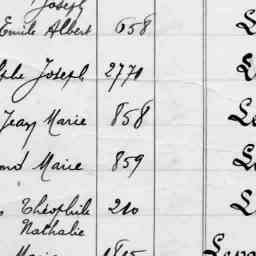 Joseph
Emile Albert 658
Joseph 2771
Jean Marie 858
Marie 859
Théophile 210
Nathalie
Marie